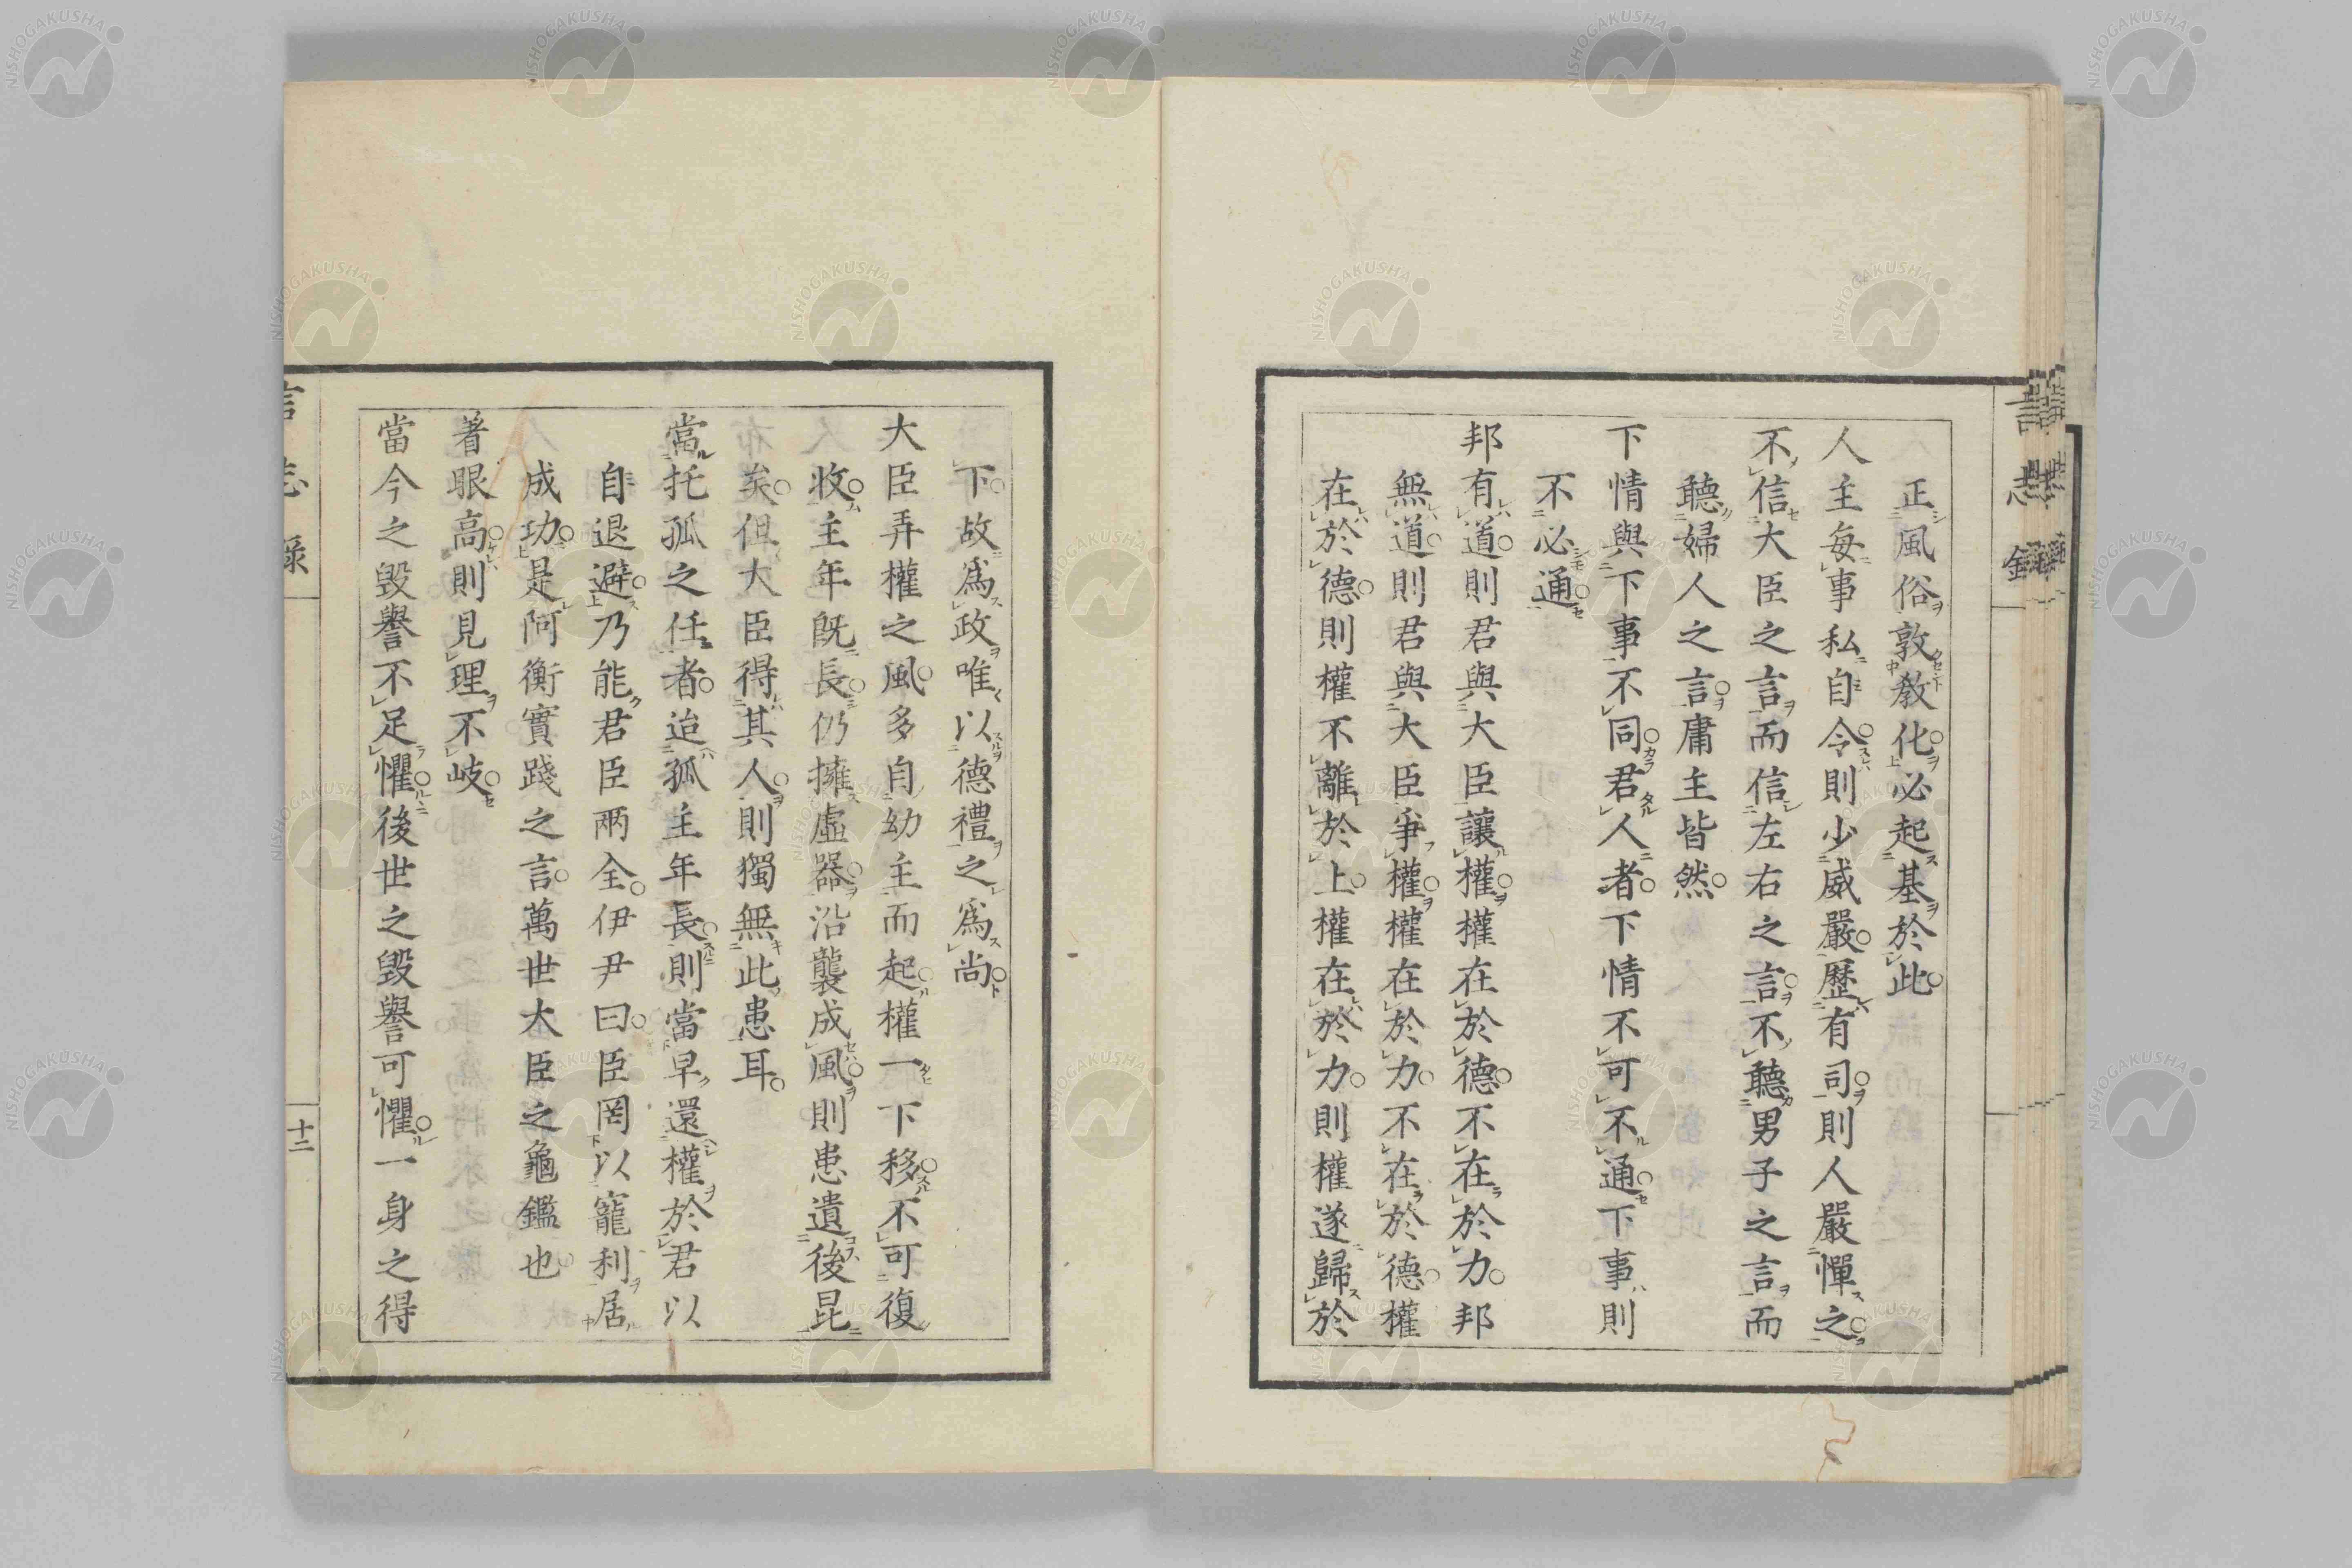 正風俗敦教化必起基於此
人主每事私自令則少威嚴歷有司則人嚴憚之
不信大臣之言而信左右之言不聽男子之言而
聽婦人之言庸主皆然
下情與下事不同君人者下情不可不通下事則
不必通
邦有道則君與大臣讓權權在於德不在於力邦
無道則君與大臣爭權權在於力不在於德權
在於德則權不離於上權在於力則權遂歸於
下故爲政唯以德禮之爲尚
大臣弄權之風多自幼主而起權一下移不可復
收主年既長仍擁虛器沿襲成風則患遺後昆
矣但大臣得其人則獨無此患耳
當托孤之任者迨孤主年長則當早還權於君以
自退避乃能君臣兩全伊尹曰臣罔以寵利居
成功是阿衡實踐之言萬世大臣之龜鑑也
著眼高則見理不岐
當今之毀譽不足懼後世之毀譽可懼一身之得
言志錄
十二
NISHOGAKUSHA